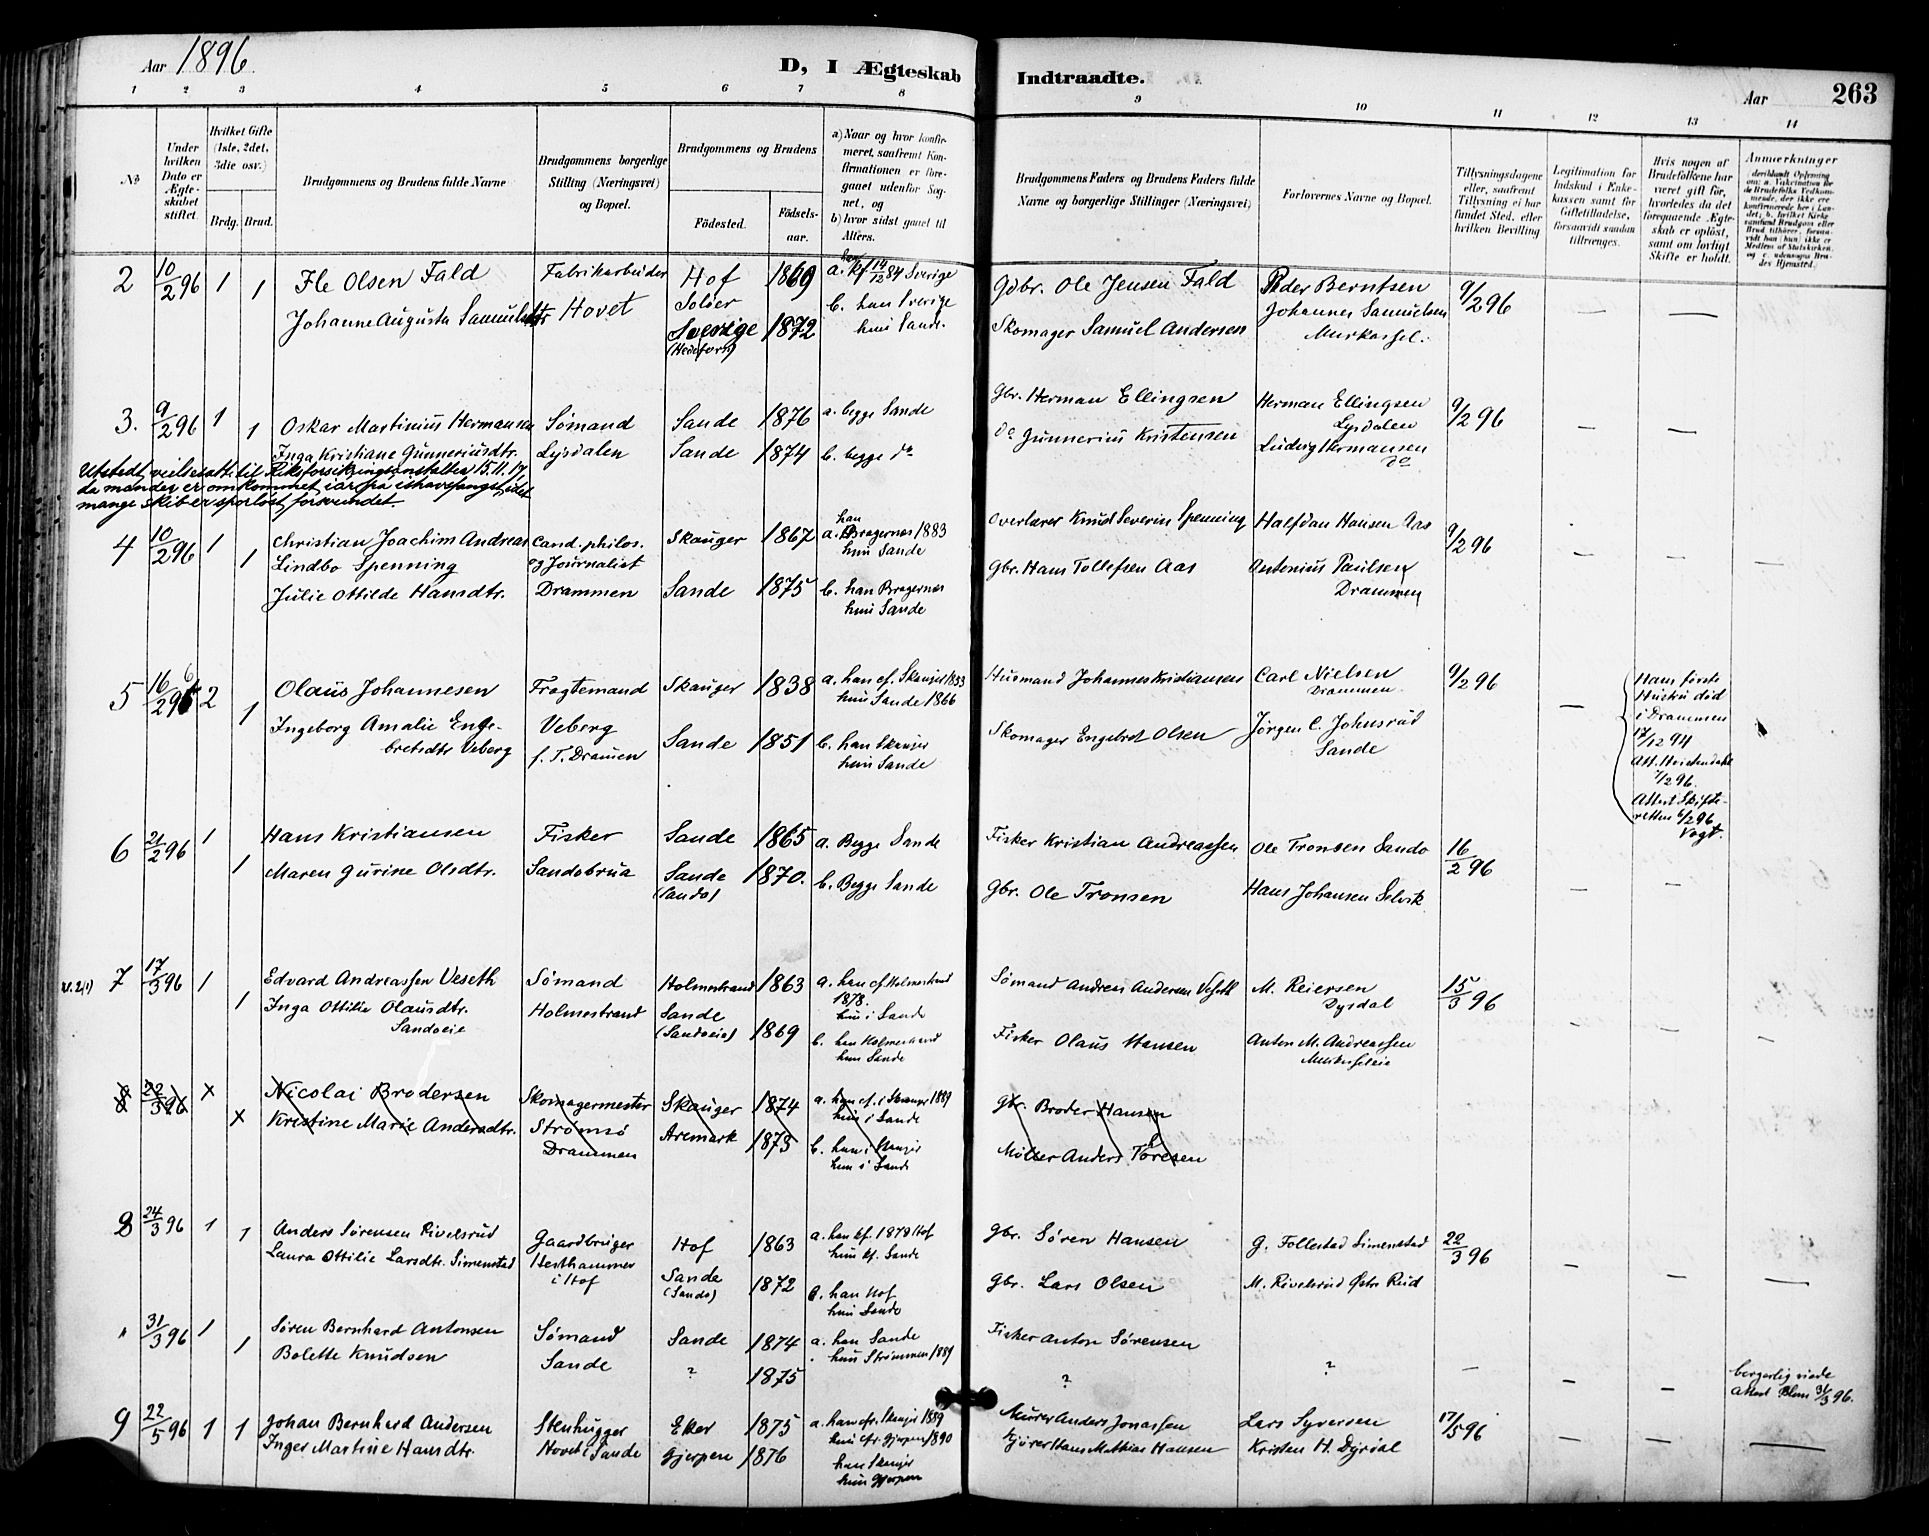 Aar 1896
D, I Ægteskab Indtraadte.
Aar 263
1 2 3 4 5 6 7 8 9 10 11 12 13 14
No
Under hvilken Dato er Ægteskabet stiftet.
Hvilket Gifte (1ste, 2det, 3die osv.)
Brdg. Brud.
Brudgommens og Brudens fulde Navne
Brudgommens borgerlige Stilling (Næringsvei) og Bopæl.
Brudgommens og Brudens
Födested. Födsels-aar.
a) Naar og hvor konfirmeret, saafremt Konfirmationen er foregaaet udenfor Sognet, og
b) hvor sidst gaaet til Alters.
Brudgommens Faders og Brudens Faders fulde Navne og borgerlige Stillinger (Næringsvei)
Forlovernes Navne og Bopæl.
Tillysningsdagene eller, saafremt Tillysning ei har fundet Sted, efter hvilken Bevilling
Legitimation for Indskud i Enkekassen samt for Giftetilladelse, forsaavidt saadan tiltrænges.
Hvis nogen af Brudefolkene har været gift för, hvorledes da det foregaaende Ægteskab er oplöst, samt om lovligt Skifte er holdt.
Anmærkninger
2 10/2 96 1 1
Ole Olsen Fald
Johanne Augusta Samuelsdtr
Fabrikarbeider
Hovet
Hof Soløer 1869
Sverige 1872
a. han kf 14/12 84 Sverige
b. han Sverige
hun Sande.
Gdbr. Ole Jensen Fald
Skomager Samuel Andersen
Peder Berntsen
Johannes Samuelsen
9/2 96
3. 9/2 96 1 1
Oskar Martinius Hermansen
Inga Kristiane Gunneriusdtr.
Sømand
Lysdalen
Sande 1876
Sande 1874
a. begge Sande
b. begge do
Gbr. Herman Ellingsen
do Gunnerius Kristensen
Herman Ellingsen
Lysdalen
Ludvig Hermansen
do
9/2 96
Utstedt vielsesatt. til Riksforsikringsanstalten 15.11.17
da manden er omkommet i år på ishavsfangst, idet
mange skib er sporløst forsvundet.
4 10/2 96 1 1
Christian Joachim Andreas
Lindbo Spenning
Julie Ottilde Hansdtr.
Cand. philos.
og Journalist
Drammen
Skauger 1867
Sande 1875
a. han Bragernes 1883
hun Sande
b. han Bragernes
hun Sande
Overlærer Knud Severin Spenning
Gbr. Hans Tollefsen Aas
Halfdan Hansen Aas
Antonius Paulsen
Drammen
9/2 96
5 16/2 96 2 1
Olaus Johannesen
Ingeborg Amalie Enge-
bretsdtr Veberg
Fragtemand
Veberg
f. T. Dramen
Skauger 1838
Sande 1851
a. han cf. Skauger 1853
hun Sande 1866
b. han Skauger
hun Sande
Husmand Johannes Kristiansen
Skomager Engebret Olsen
Carl Nielsen
Drammen.
Jørgen C. Johnsrud
Sande
9/2 96
Hans første
Hustru død
i Drammen
17/12 94
7/2 96.
Attest Skifte-
retten 6/2 96
Vogt.
6 21/2 96 1 1
Hans Kristiansen
Maren Gurine Olsdtr.
Fisker
Sandebrua
Sande 1865
Sande (Sando) 1870.
a. Begge Sande
b. Begge Sande
Fisker Kristian Andreassen
Gbr. Ole Tronsen
Ole Tronsen Sando
Hans Johansen Selvik
16/2 96
7 17/3 96 1 1
Edvard Andreassen Veseth
Inga Ottilie Olausdtr.
Sandoeie
Sømand
Holmestrand
Holmestrand 1863
Sande (Sandoeie) 1869
a. han cf Holmestrand
1878.
hun i Sande
b. han Holmestrand
hun Sande
Sømand Andreas Andersen Veseth
Fisker Olaus Hansen
M. Reiersen
Dysdal
Anton M. Andreassen
15/3 96
8 22/3 96 x x
Nicolai Brodersen
Kristine Marie Andersdtr.
Skomagermester
Strømsø
Drammen
Skauger 1874
Aremark 1873
a. han cf. i Skauger 1889
hun i Sande
b. han i Skauger
hun i Sande
Gbr. Broder Hansen
Møller Anders Toresen
8 24/3 96 1 1
Anders Sørensen Rivelsrud
Laura Ottilie Larsdtr. Simenstad
Gaardbruger
Berthammer
i Hof
Hof 1863
Sande (Sando) 1872
a. han kf. 1879 Hof
hun kf. Sande
b. han Hof
hun Sande
Gbr. Søren Hansen
Gbr. Lars Olsen
G. Follestad Simenstad
M. Rivelsrud Østre Rud
22/3 96
" 31/3 96 1 1
Søren Bernhard Antonsen
Bolette Knudsen
Sømand
Sande
Sande 1874
? 1875
a. han Sande
hun Strømmen 1889
Fisker Anton Sørensen
?
?
borgerlig viede
Attest Blom 31/3 96.
9 22/5 96 1 1
Johan Bernhard Andersen
Inger Martine Hansdtr.
Stenhugger
Hovet i Sande
Eker 1875
Gjerpen 1876
a. han cfr. Skauger 1889
hun cfr Gjerpen 1890
han Skauger
hun Gjerpen
Murer Anders Jonassen
Kjører Hans Mathias Hansen
Lars Syversen
Kristen H. Dyrdal
17/5 96